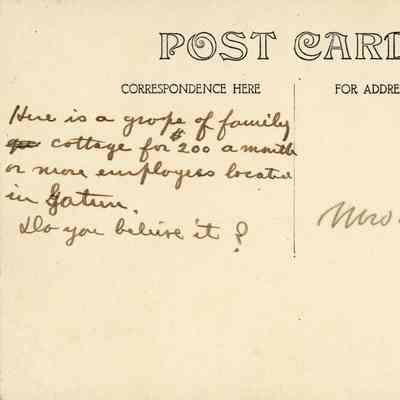 POST CARD
CORRESPONDENCE HERE
FOR ADDRE
Here is a grope of family
cottage for $200 a month
or more employees located
in Gatun.
Do you believe it ?
Mrs